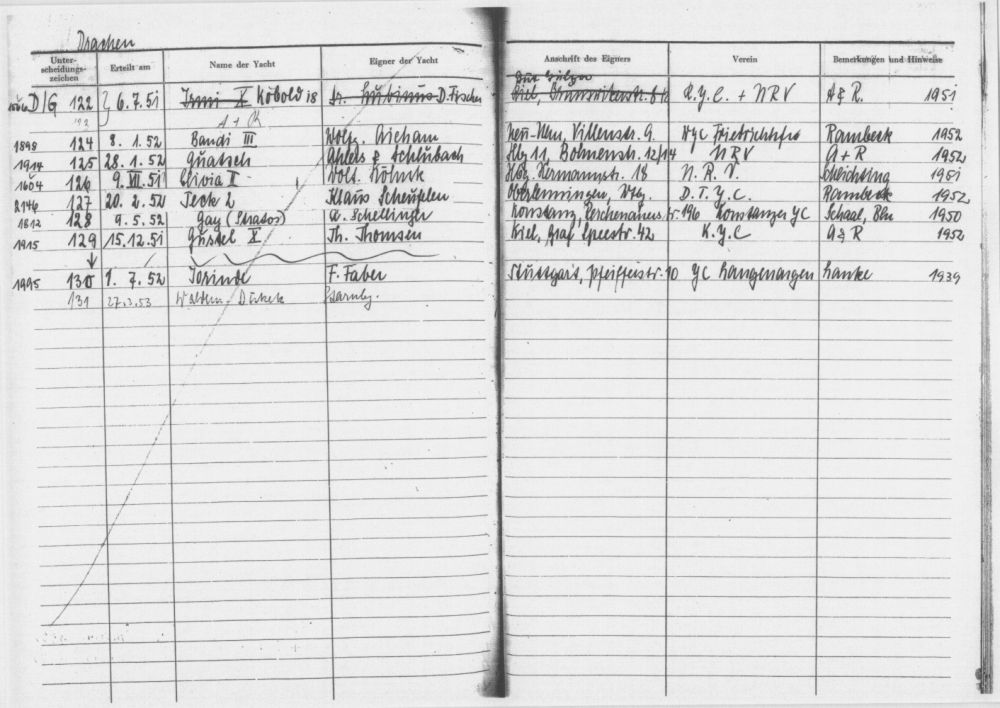 Drachen
Unter-scheidungs-zeichen Erteilt am Name der Yacht Eigner der Yacht Anschrift des Eigners Verein Bemerkungen und Hinweise
D/G 122 6.7.51 Irmi X Kobold 18 Dr. D. Fischer Kiel, K.Y.C. + NRV A & R. 1951
A + R
1898 124 8. 1. 52 Bandi III Wolfg. Neu-Ulm, Villenstr. 9 Rambeck 1952
1914 125 28. 1. 52 Quatsch Ahlers & Schlubach Hbg 11, Bohnenstr. 12/14 NRV A + R 1952
1604 126 9. VII. 51 Clivia II Hbg. Hermannstr. 18 N. R. V. Schlichting 1951
2146 127 20. 2. 52 Teck 2 Klaus Scheufelen Oberlenningen, Wtg. D. T. Y. C. Rambeck 1952
1812 128 9. 5. 52 Gay (Stratos) A. Schellinger Konstanz, Konstanzer YC Schaal, Bln 1950
1915 129 15. 12. 51 Gustel X Th. Thomsen Kiel, Graf Speestr. 42 K. Y. C A & R 1952
1995 130 1. 7. 52 Jorinde F. Faber Stuttgart, Pfeifferstr. 10 YC Langenargen Hanke 1939
131 27.3.53